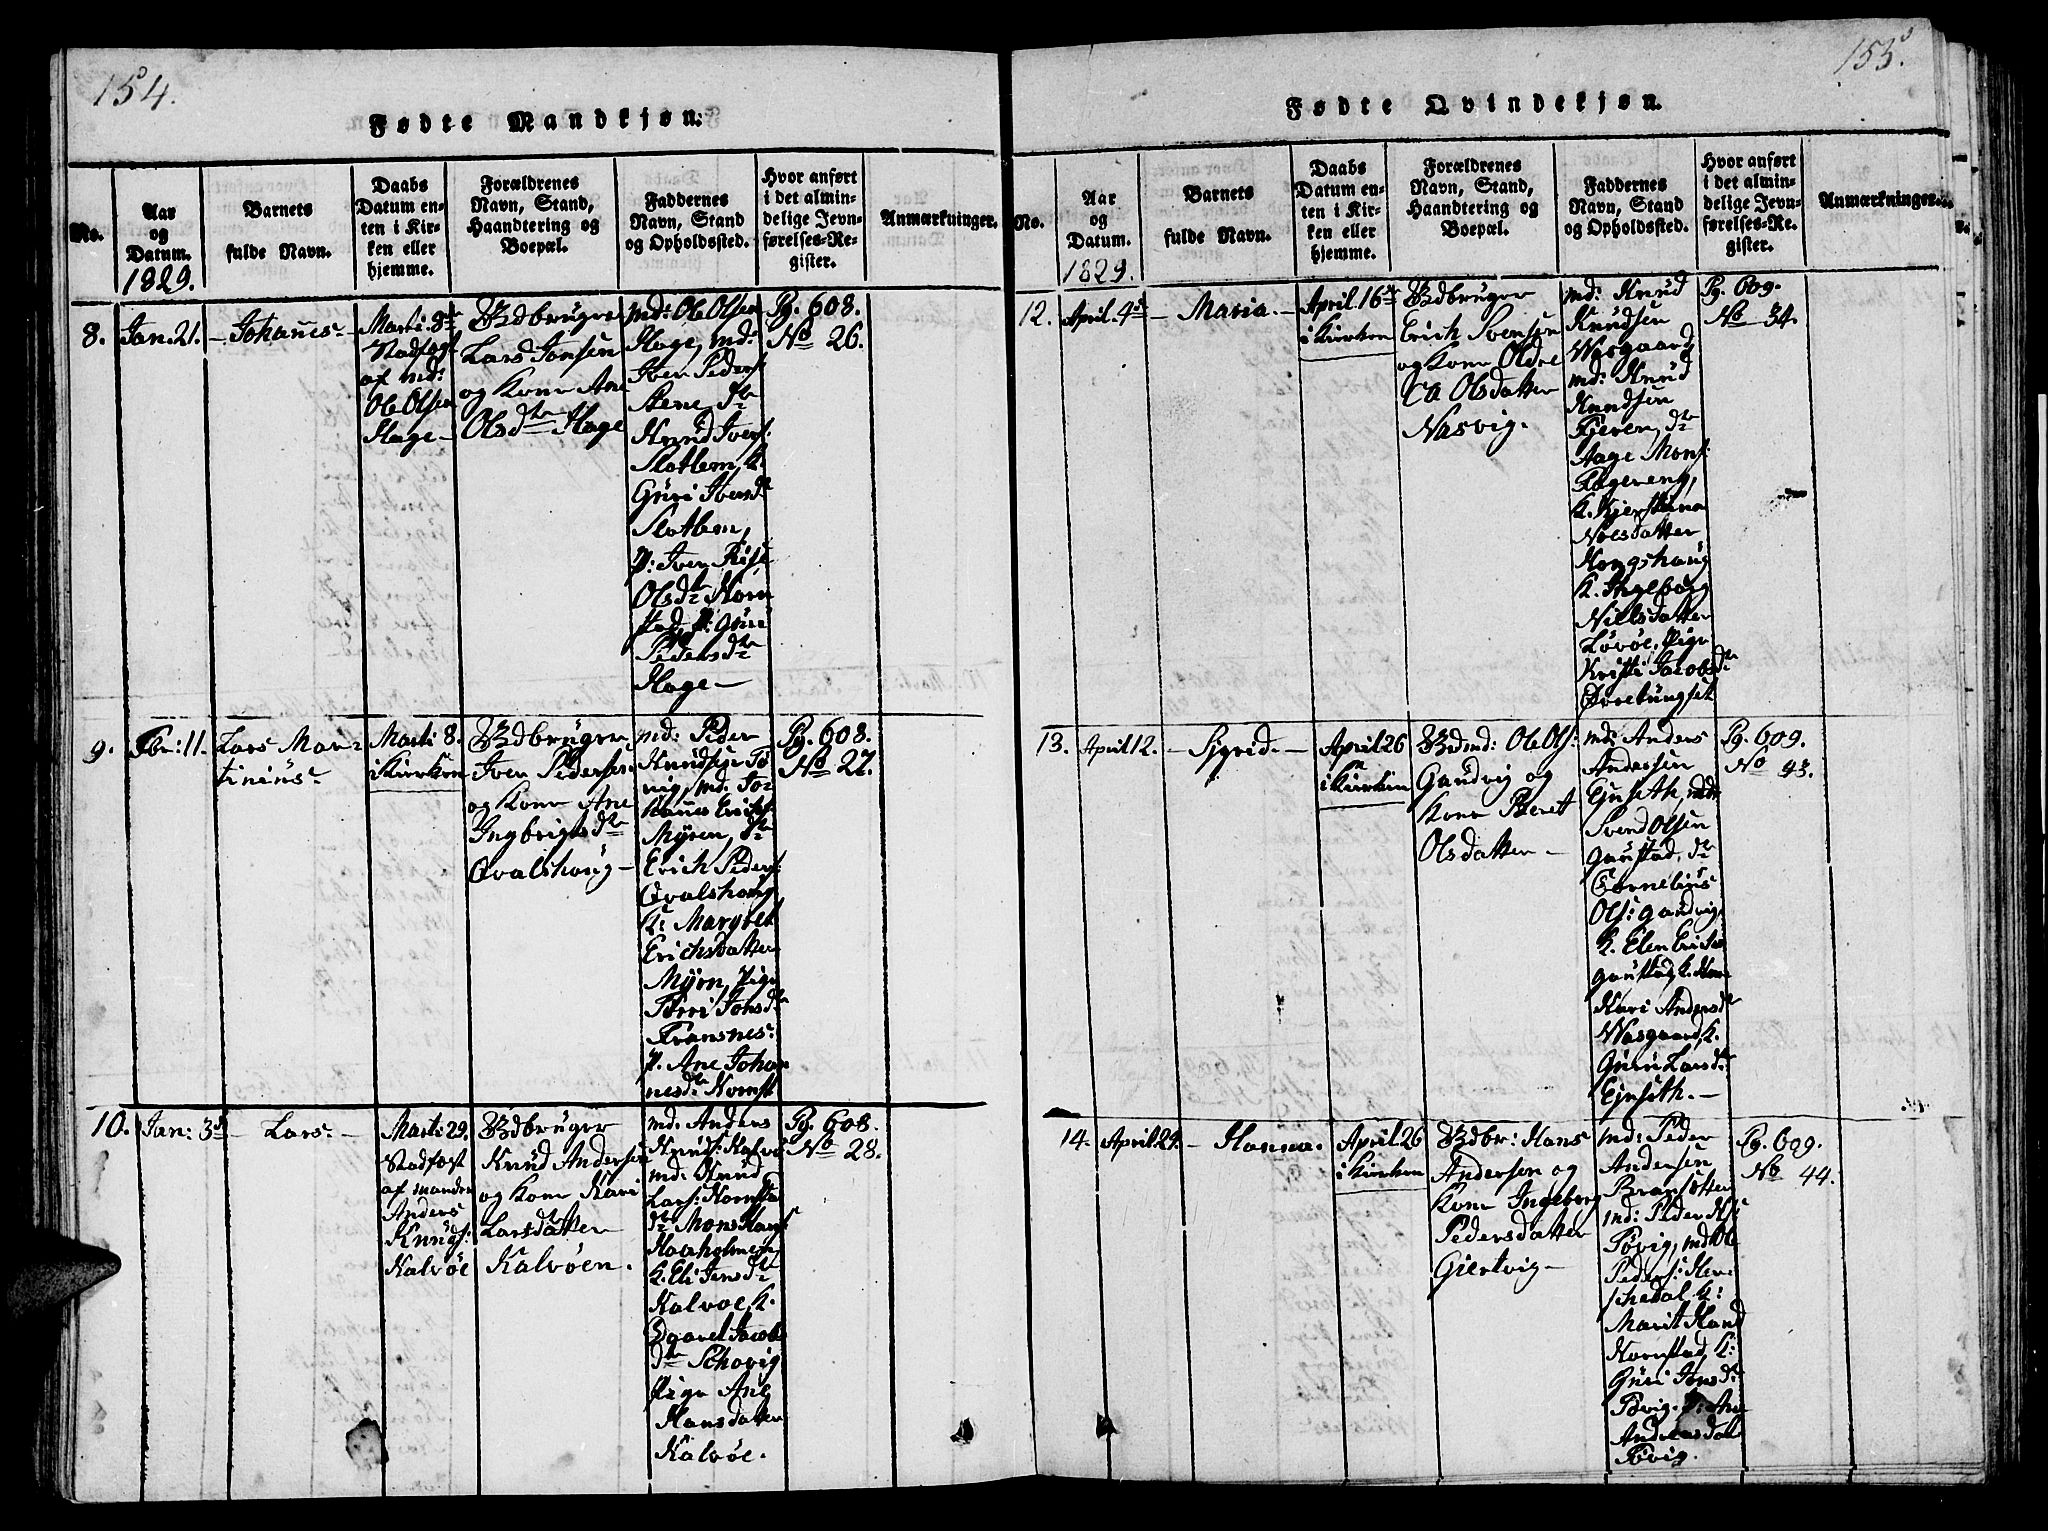 154.
Fødte Mandkjøn:
No.
Aar
og
Datum.
1829.
Barnets
fulde Navn.
Daabs
Datum en-
ten i Kir-
ken eller
hjemme.
Forældrenes
Navn, Stand,
Haandtering og
Boepæl.
Faddernes
Navn, Stand
og Opholdssted.
Hvor anført
i det almin-
delige Jevn-
førelses-Re-
gister.
Anmærkninger.
8.
Jan. 21.
Johanes
Marti 8de
Stadfæst
af md:
Ole Olsen
Hage
Gbdbruger
Lars Jonsen
og Kone Ane
Olsdtr Hage
md: Ole Olsen
Hage, md:
Iver Peders:
Stene, dr
Knud Ivers:
Slotlem, K.
Guri Iversdr
Slotlem,
Olsdtr Korn
stad, P: Guri
Pedersdtr
Hage
Pg. 608.
No 26.
9.
Febr: 11.
Lars Mar-
tinius
Marti 8.
i Kirken
Gbdbruger
Iver Pedersen
og Kone Ane
Ingbrigtsdtr
Qvalshoug
md: Peder
vig, md. Jo-
hanes Erichs:
Myren, dr
Erich Peders:
Qvalshoug
K: Margret
Erichsdatter
Myrn, Pige
Jonsdr
Fransnes:
P. Ane Johan
nesdr Kornst
Pg. 608.
No 27.
10.
Jan: 3de
Lars
Marti 29.
Stadfæst
af manden
Anders
Knuds:
Kalvøe
Gbdbruger
Knud Andersen
og Kone Kari
Larsdatter
Kalvøen.
md. Anders
Knuds: Kalvø
md: Knud
Lars: Kornstad
dr Mons
Haaholmen
K. Eli Jensdr
Kalvøe, K.
Jacobs
dtr
Pige Ane
Hansdatter
Kalvøe.
Pg. 608.
No 28.
155.
Fødte Qvindekjøn.
No.
Aar
og
Datum.
1829.
Barnets
fulde Navn.
Daabs
Datum en-
ten i Kir-
ken eller
hjemme.
Forældrenes
Navn, Stand,
Haandtering og
Boepæl.
Faddernes
Navn, Stand
og Opholdssted.
Hvor anført
i det almin-
delige Jevn-
førelses-Re-
gister.
Anmærkninger.
12.
April 4de
Maria.
April 16de
i Kirken
Gbdbruger
Erich Svensen
og Kone
Olsdatter
Nasvig.
md: Knud
Knudsen
Wasgaard
md: Knud
Knudsen
dr
Aage Mons:
K. Kierstina
Nilsdatter
Kongshoug
K. Ingeborg
Nielsdatter
Løvøe, Pige
Kristi Jacobsdr
Pg. 609.
No 34.
13.
April 12.
Sigrid.
April 26
i Kirken
Gbdmd: Ole Ols:
Gaudvig og
Kone Beret
Olsdatter
md: Anders
Andersen
Ejnseth, md:
Svend Olsen
Gaustad, dr
Cornelius
Ols: Gaudvig
K. Elen Erichs
Gaustad, K.
Kari Andersdr
Wasgaard, K.
Guri Larsdr
Ejnseth.
Pg. 609.
No 43.
14.
April 24.
Hanna.
April 26
i Kirken
Gbdbr: Hans
Andersen og
Kone Ingeborg
Pedersdatter
Giertvig
md: Peder
Andersen
md: Peder
md: Ole
Peders: Hen-
schedal K:
Marit
Kornstad, K:
Guri Jonsdr
P: Ane
Andersdatr
Pg. 609.
No 44.